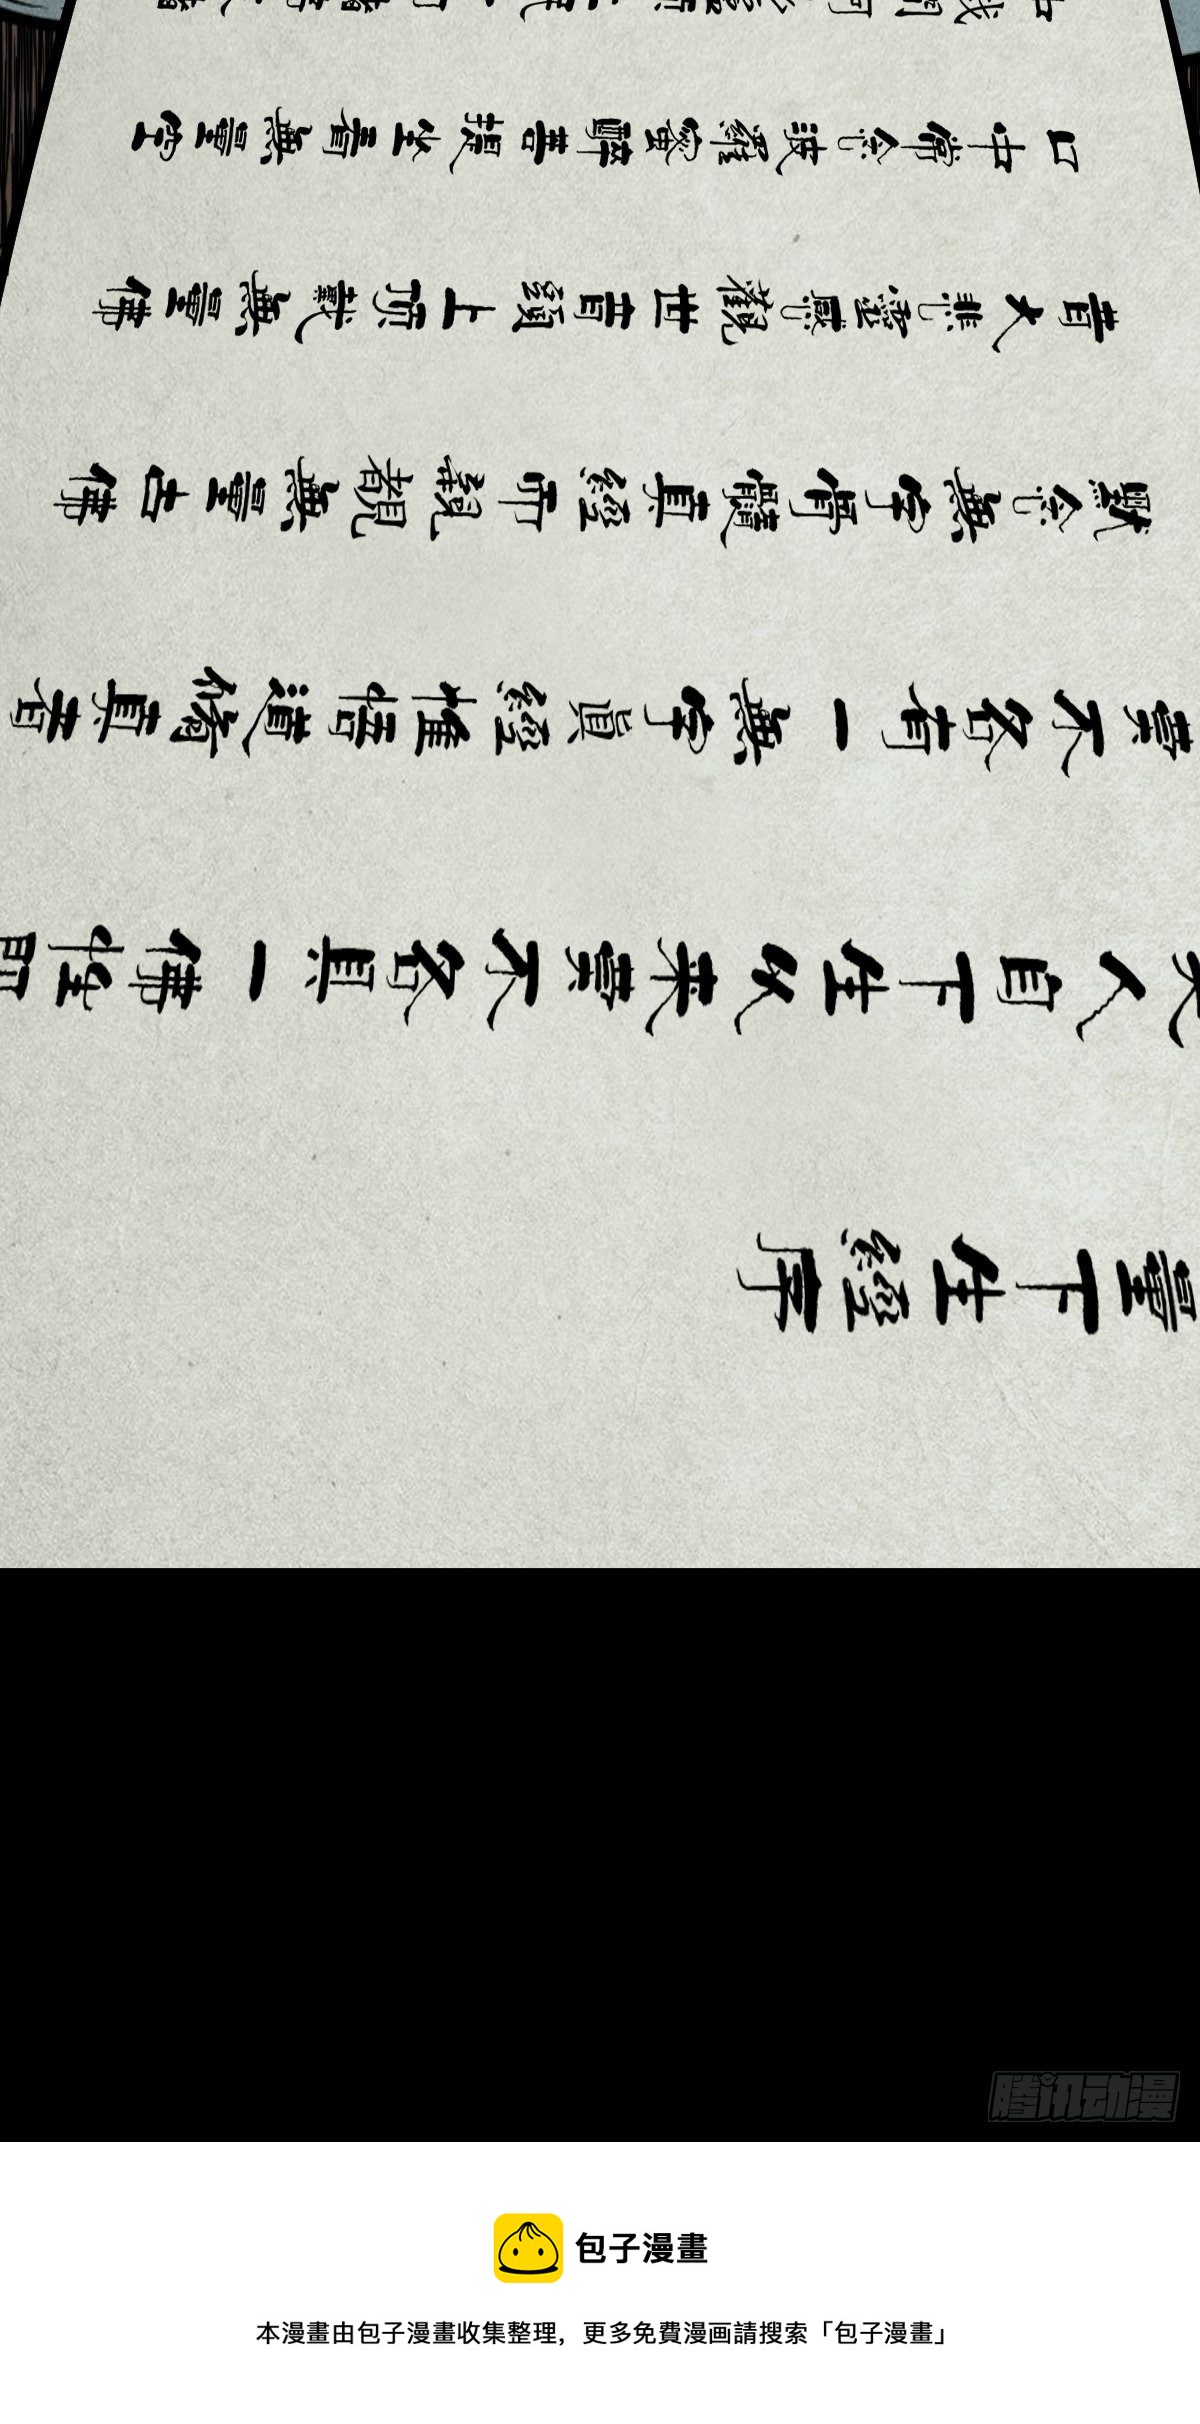 量下生經序
人自下生以來實不名具一佛性即
實不名有一無字眞經惟悟道脩真者
默念無字骨髓真經而親覩無量古佛
昔大悲靈感觀世音頭上頂戴無量佛
口中常念波羅蜜醉菩提坐看無量空
腾讯动漫
包子漫畫
本漫畫由包子漫畫收集整理，更多免費漫画請搜索「包子漫畫」